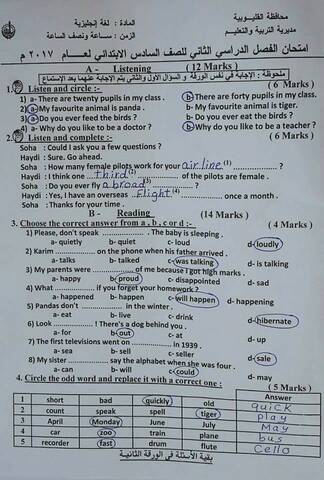 محافظة القليوبية
مديرية التربية والتعليم
المادة : لغة إنجليزية
الزمن : ساعة ونصف الساعة
امتحان الفصل الدراسي الثاني للصف السادس الابتدائي لعام ٢٠١٧ م
A - Listening (12 Marks)
ملحوظة : الإجابة في نفس الورقة و السؤال الأول والثاني يتم الإجابة عنهما بعد الاستماع
1. Listen and circle : (6 Marks)
1) a- There are twenty pupils in my class . b- There are forty pupils in my class.
2) a- My favourite animal is panda . b- My favourite animal is tiger.
3) a- Do you ever feed the birds ? b- Do you ever eat the birds ?
4) a- Why do you like to be a doctor ? b- Why do you like to be a teacher ?
2. Listen and complete:- (6 Marks)
Soha : Could I ask you a few questions ?
Haydi : Sure. Go ahead.
Soha : How many female pilots work for your air line (1) ?
Haydi : I think one third (2) of the pilots are female .
Soha : Do you ever fly abroad (3) ?
Haydi : Yes, I have an overseas Flight (4) once a month .
Soha : Thanks for your time .
B - Reading (14 Marks)
3. Choose the correct answer from a , b , c or d :- (4 Marks)
1) Please, don't speak .............. . The baby is sleeping .
a- quietly b- quiet c- loud d- loudly
2) Karim .............. on the phone when his father arrived .
a- talks b- talked c- was talking d- is talking
3) My parents were .............. of me because I got high marks .
a- happy b- proud c- disappointed d- sad
4) What .............. if you forget your homework ?
a- happened b- happen c- will happen d- happening
5) Pandas don't .............. in the winter .
a- eat b- live c- drink d- hibernate
6) Look .............. ! There's a dog behind you .
a- for b- out c- at d- up
7) The first televisions went on .............. in 1939 .
a- sea b- sell c- seller d- sale
8) My sister .............. say the alphabet when she was four .
a- can b- will c- could d- may
4. Circle the odd word and replace it with a correct one : (5 Marks)
Answer
1 short bad quickly old quick
2 count speak spell tiger play
3 April Monday June July May
4 car zoo train plane bus
5 recorder fast drum flute Cello
بقية الأسئلة في الورقة الثانية